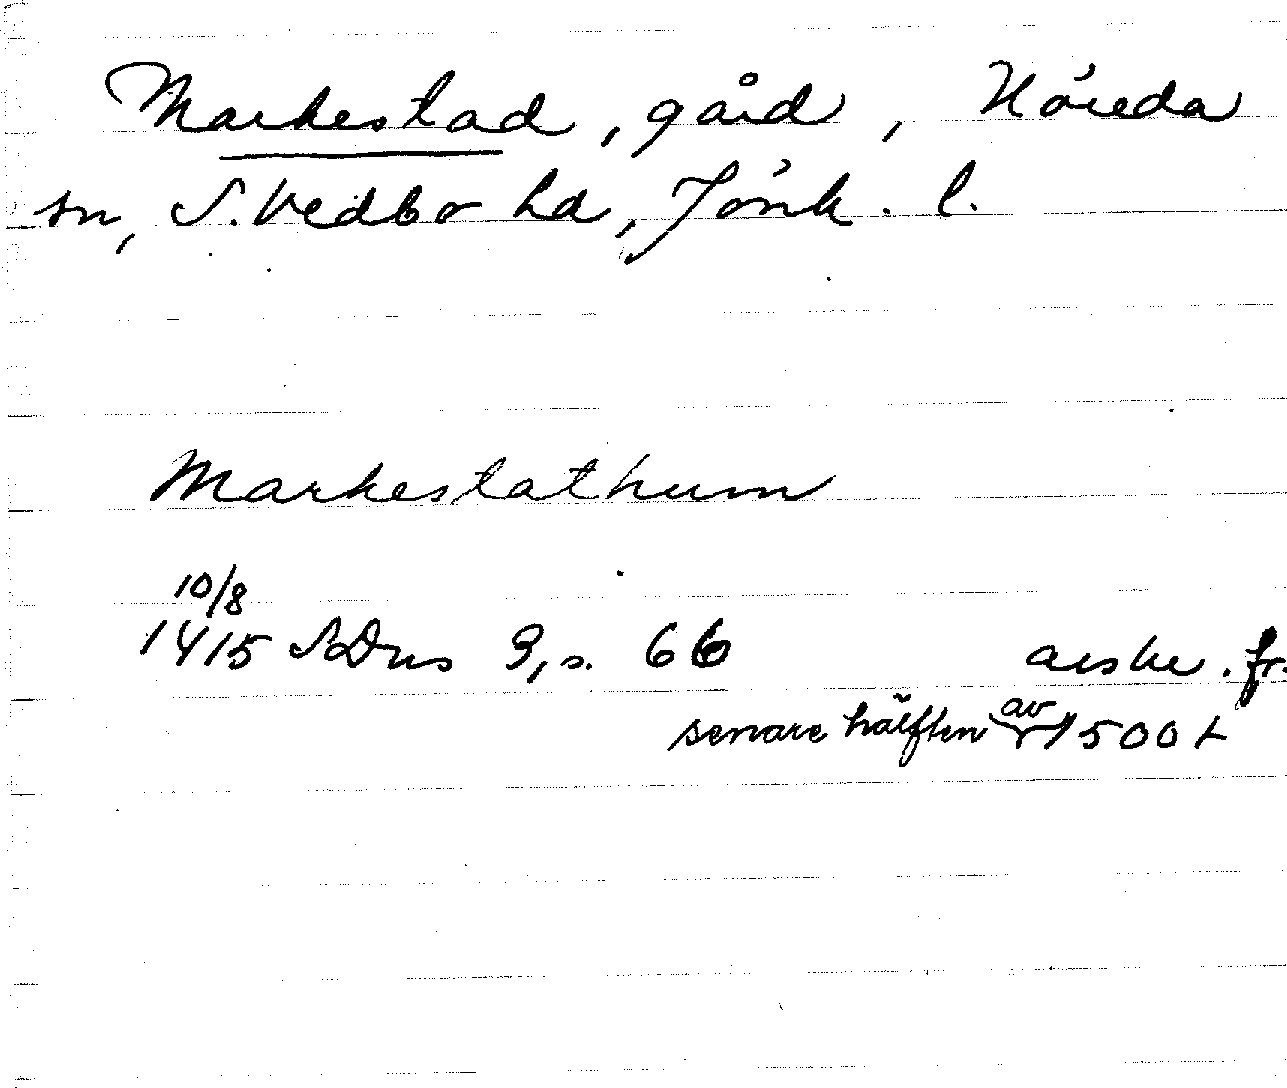 Markestad, gård, Höreda
sn, S. Vedbo hd, Jönk. l.
Markestathum
10/8
1415 SDns 3, s. 66 avskr. fr.
senare hälften av 1500 t